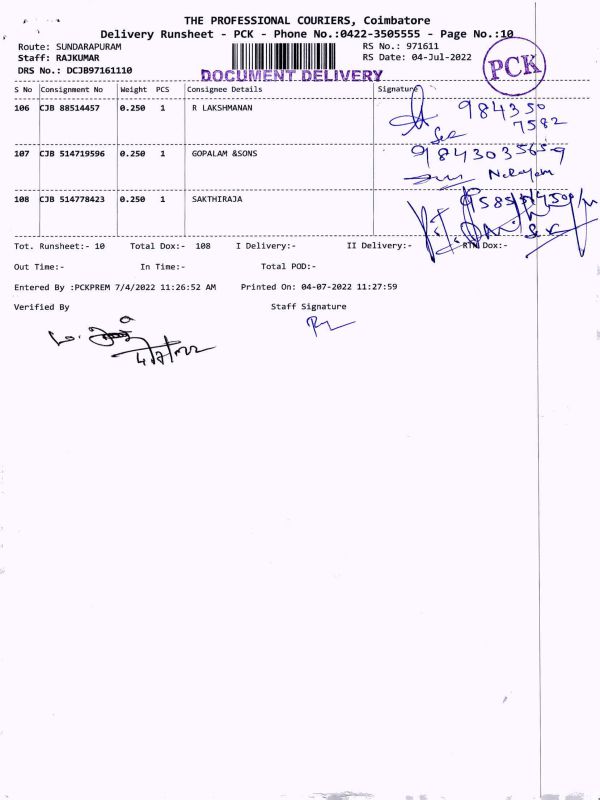 THE PROFESSIONAL COURIERS, Coimbatore
Delivery Runsheet - PCK - Phone No.:0422-3505555 - Page No.:10
Route: SUNDARAPURAM
Staff: RAJKUMAR
DRS No.: DCJB97161110
RS No.: 971611
RS Date: 04-Jul-2022
PCK
DOCUMENT DELIVERY
S No Consignment No Weight PCS Consignee Details Signature
106 CJB 88514457 0.250 1 R LAKSHMANAN
984350
7582
107 CJB 514719596 0.250 1 GOPALAM &SONS
108 CJB 514778423 0.250 1 SAKTHIRAJA
Tot. Runsheet:- 10 Total Dox:- 108 I Delivery:- II Delivery:- RTN Dox:-
Out Time:- In Time:- Total POD:-
Entered By :PCKPREM 7/4/2022 11:26:52 AM Printed On: 04-07-2022 11:27:59
Verified By Staff Signature